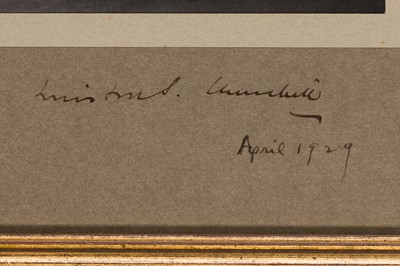 Winston S. Churchill
April 1929